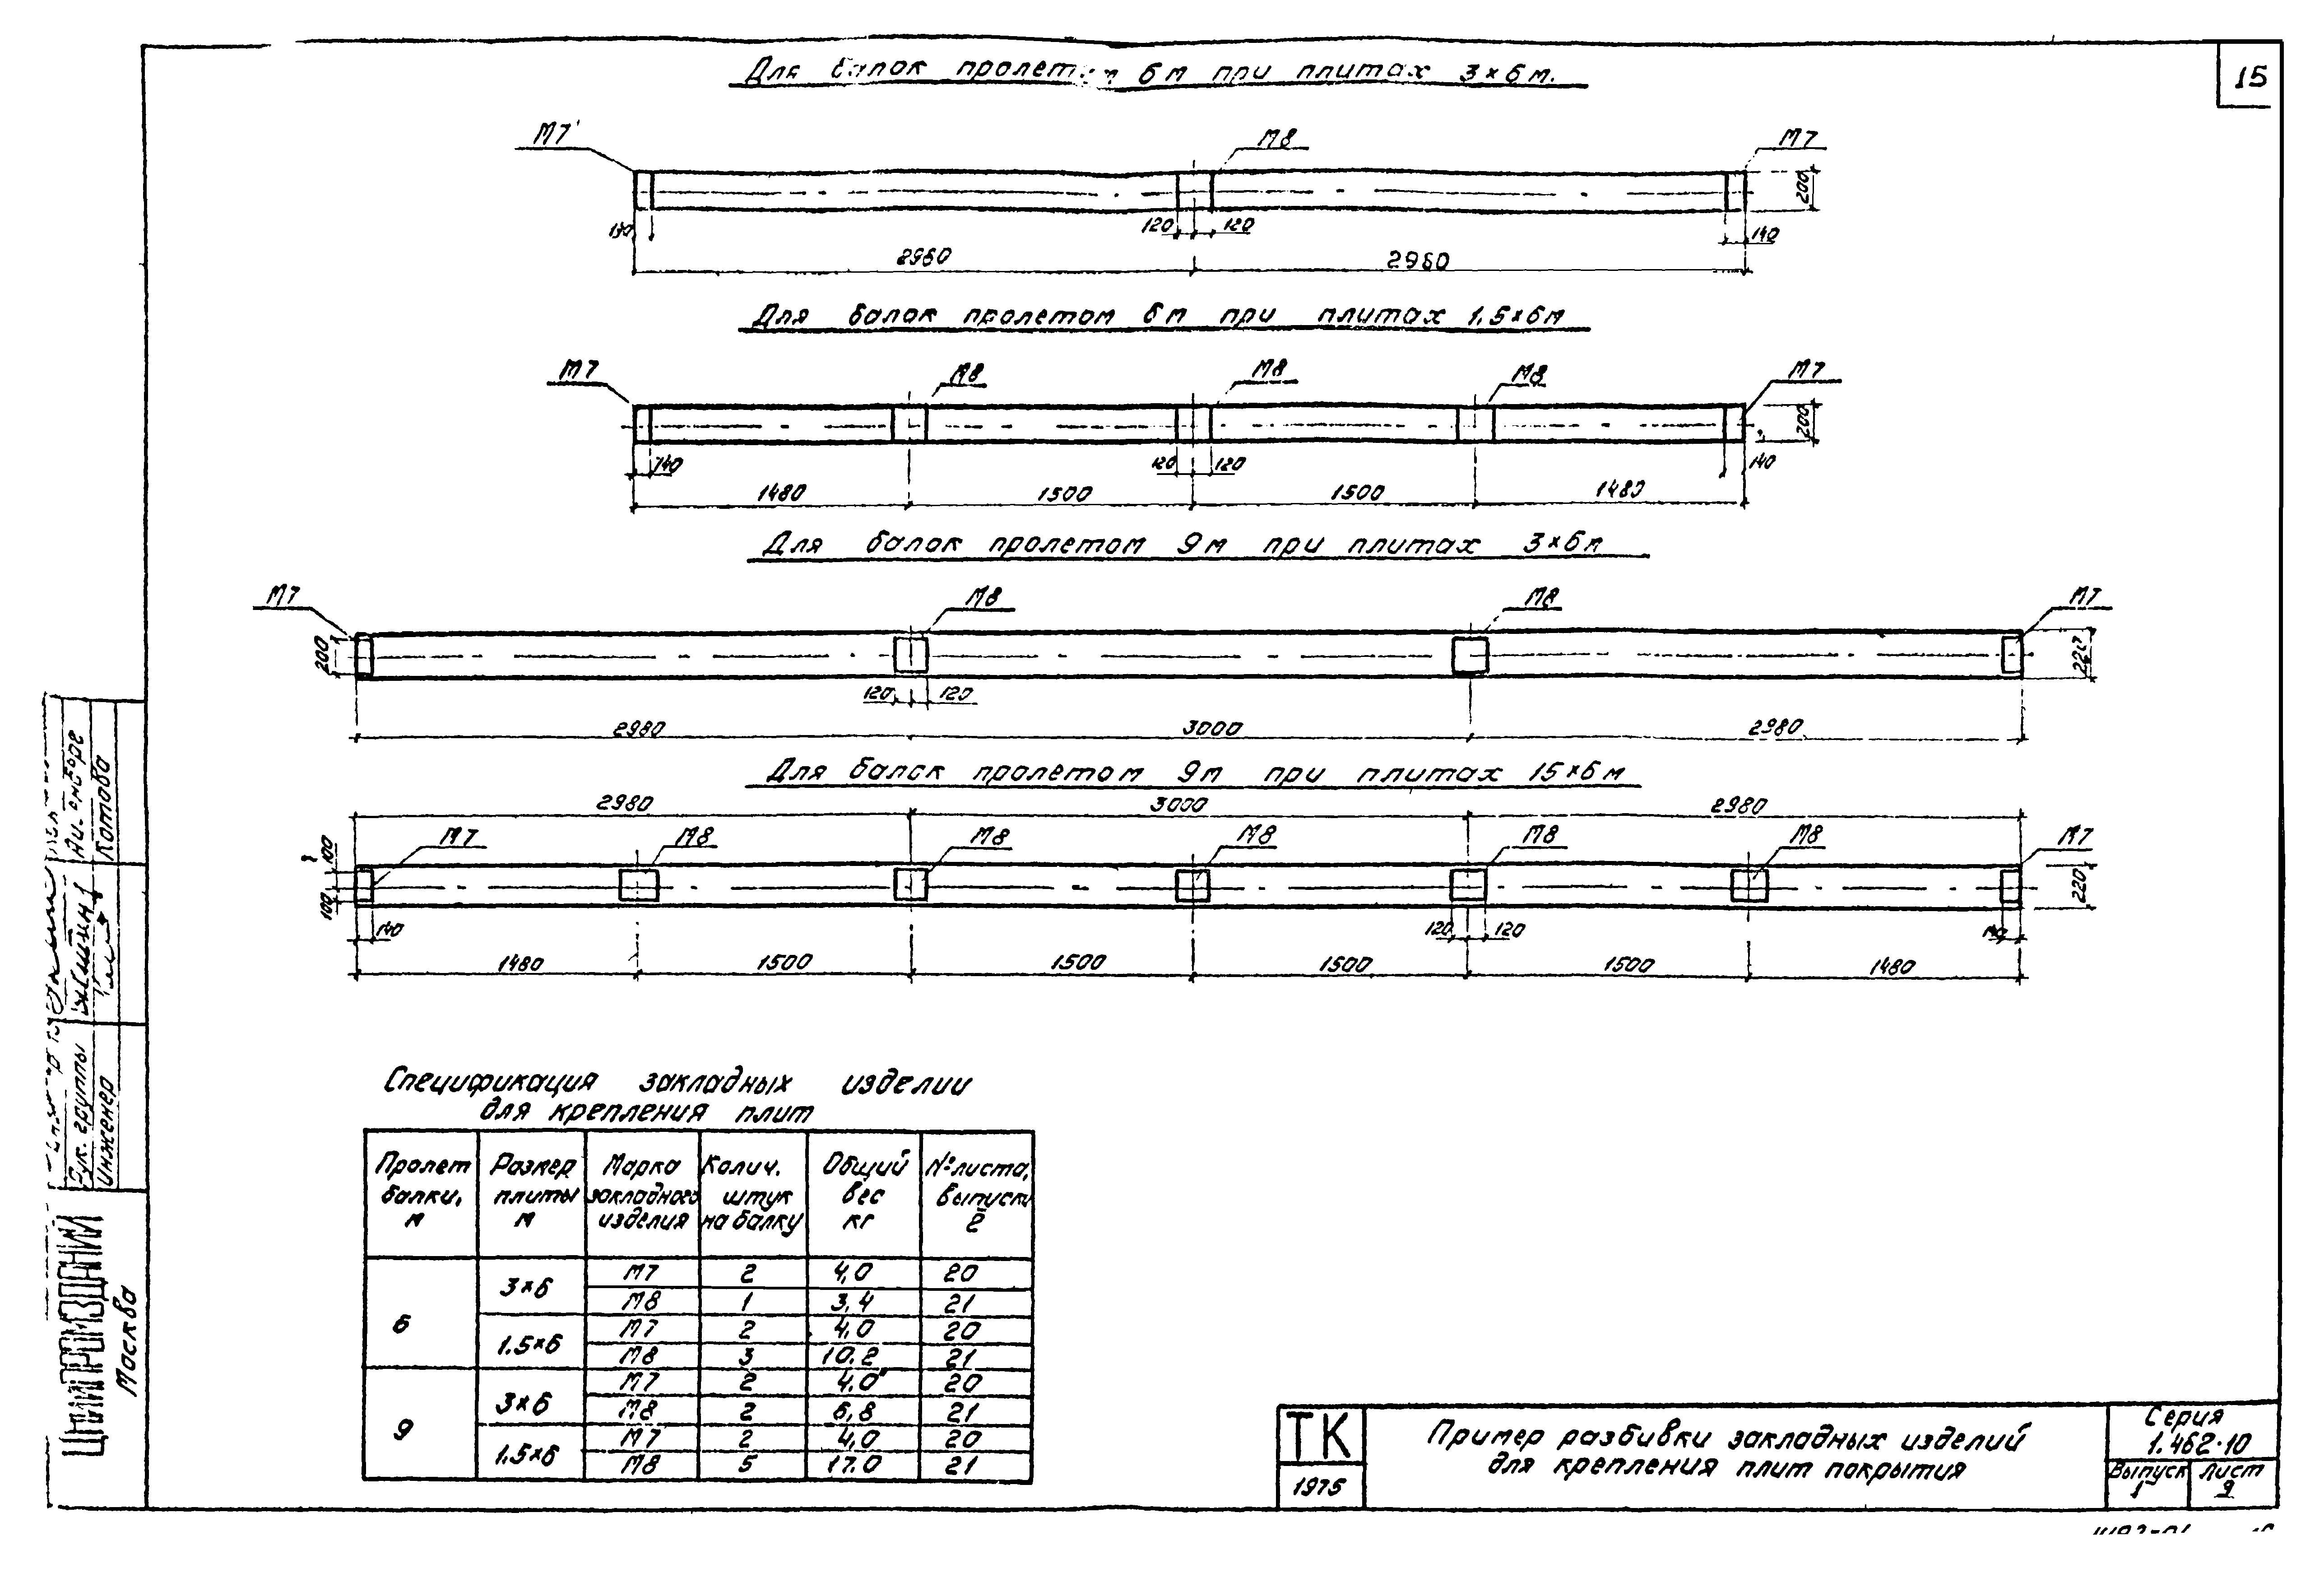 15
Для балок пролетом 6м при плитах 3×6м.
М7 М8 М7
200
130 120 120 140
2980 2980
Для балок пролетом 6м при плитах 1,5×6м
М7 М8 М8 М8 М7
200
140 120 120 140
1480 1500 1500 1480
Для балок пролетом 9м при плитах 3×6м
М7 М8 М8 М7
200 220
120 120
2980 3000 2980
Для балок пролетом 9м при плитах 15×6м
2980 3000 2980
М7 М8 М8 М8 М8 М8 М7
100 100 220
140 120 120 140
1480 1500 1500 1500 1500 1480
Спецификация закладных изделии
для крепления плит
Пролет балки, м Размер плиты м Марка закладного изделия Колич. штук на балку Общий вес кг № листа, выпуск 2
6 3×6 М7 2 4,0 20
М8 1 3,4 21
1.5×6 М7 2 4,0 20
М8 3 10.2 21
9 3×6 М7 2 4,0 20
М8 2 6,8 21
1.5×6 М7 2 4,0 20
М8 5 17.0 21
ТК
1975
Пример разбивки закладных изделий
для крепления плит покрытия
Серия
1.462-10
Выпуск 1
Лист 9
Рук. группы
Инженер
Котова
ЦНИИПРОМЗДАНИЙ
Москва